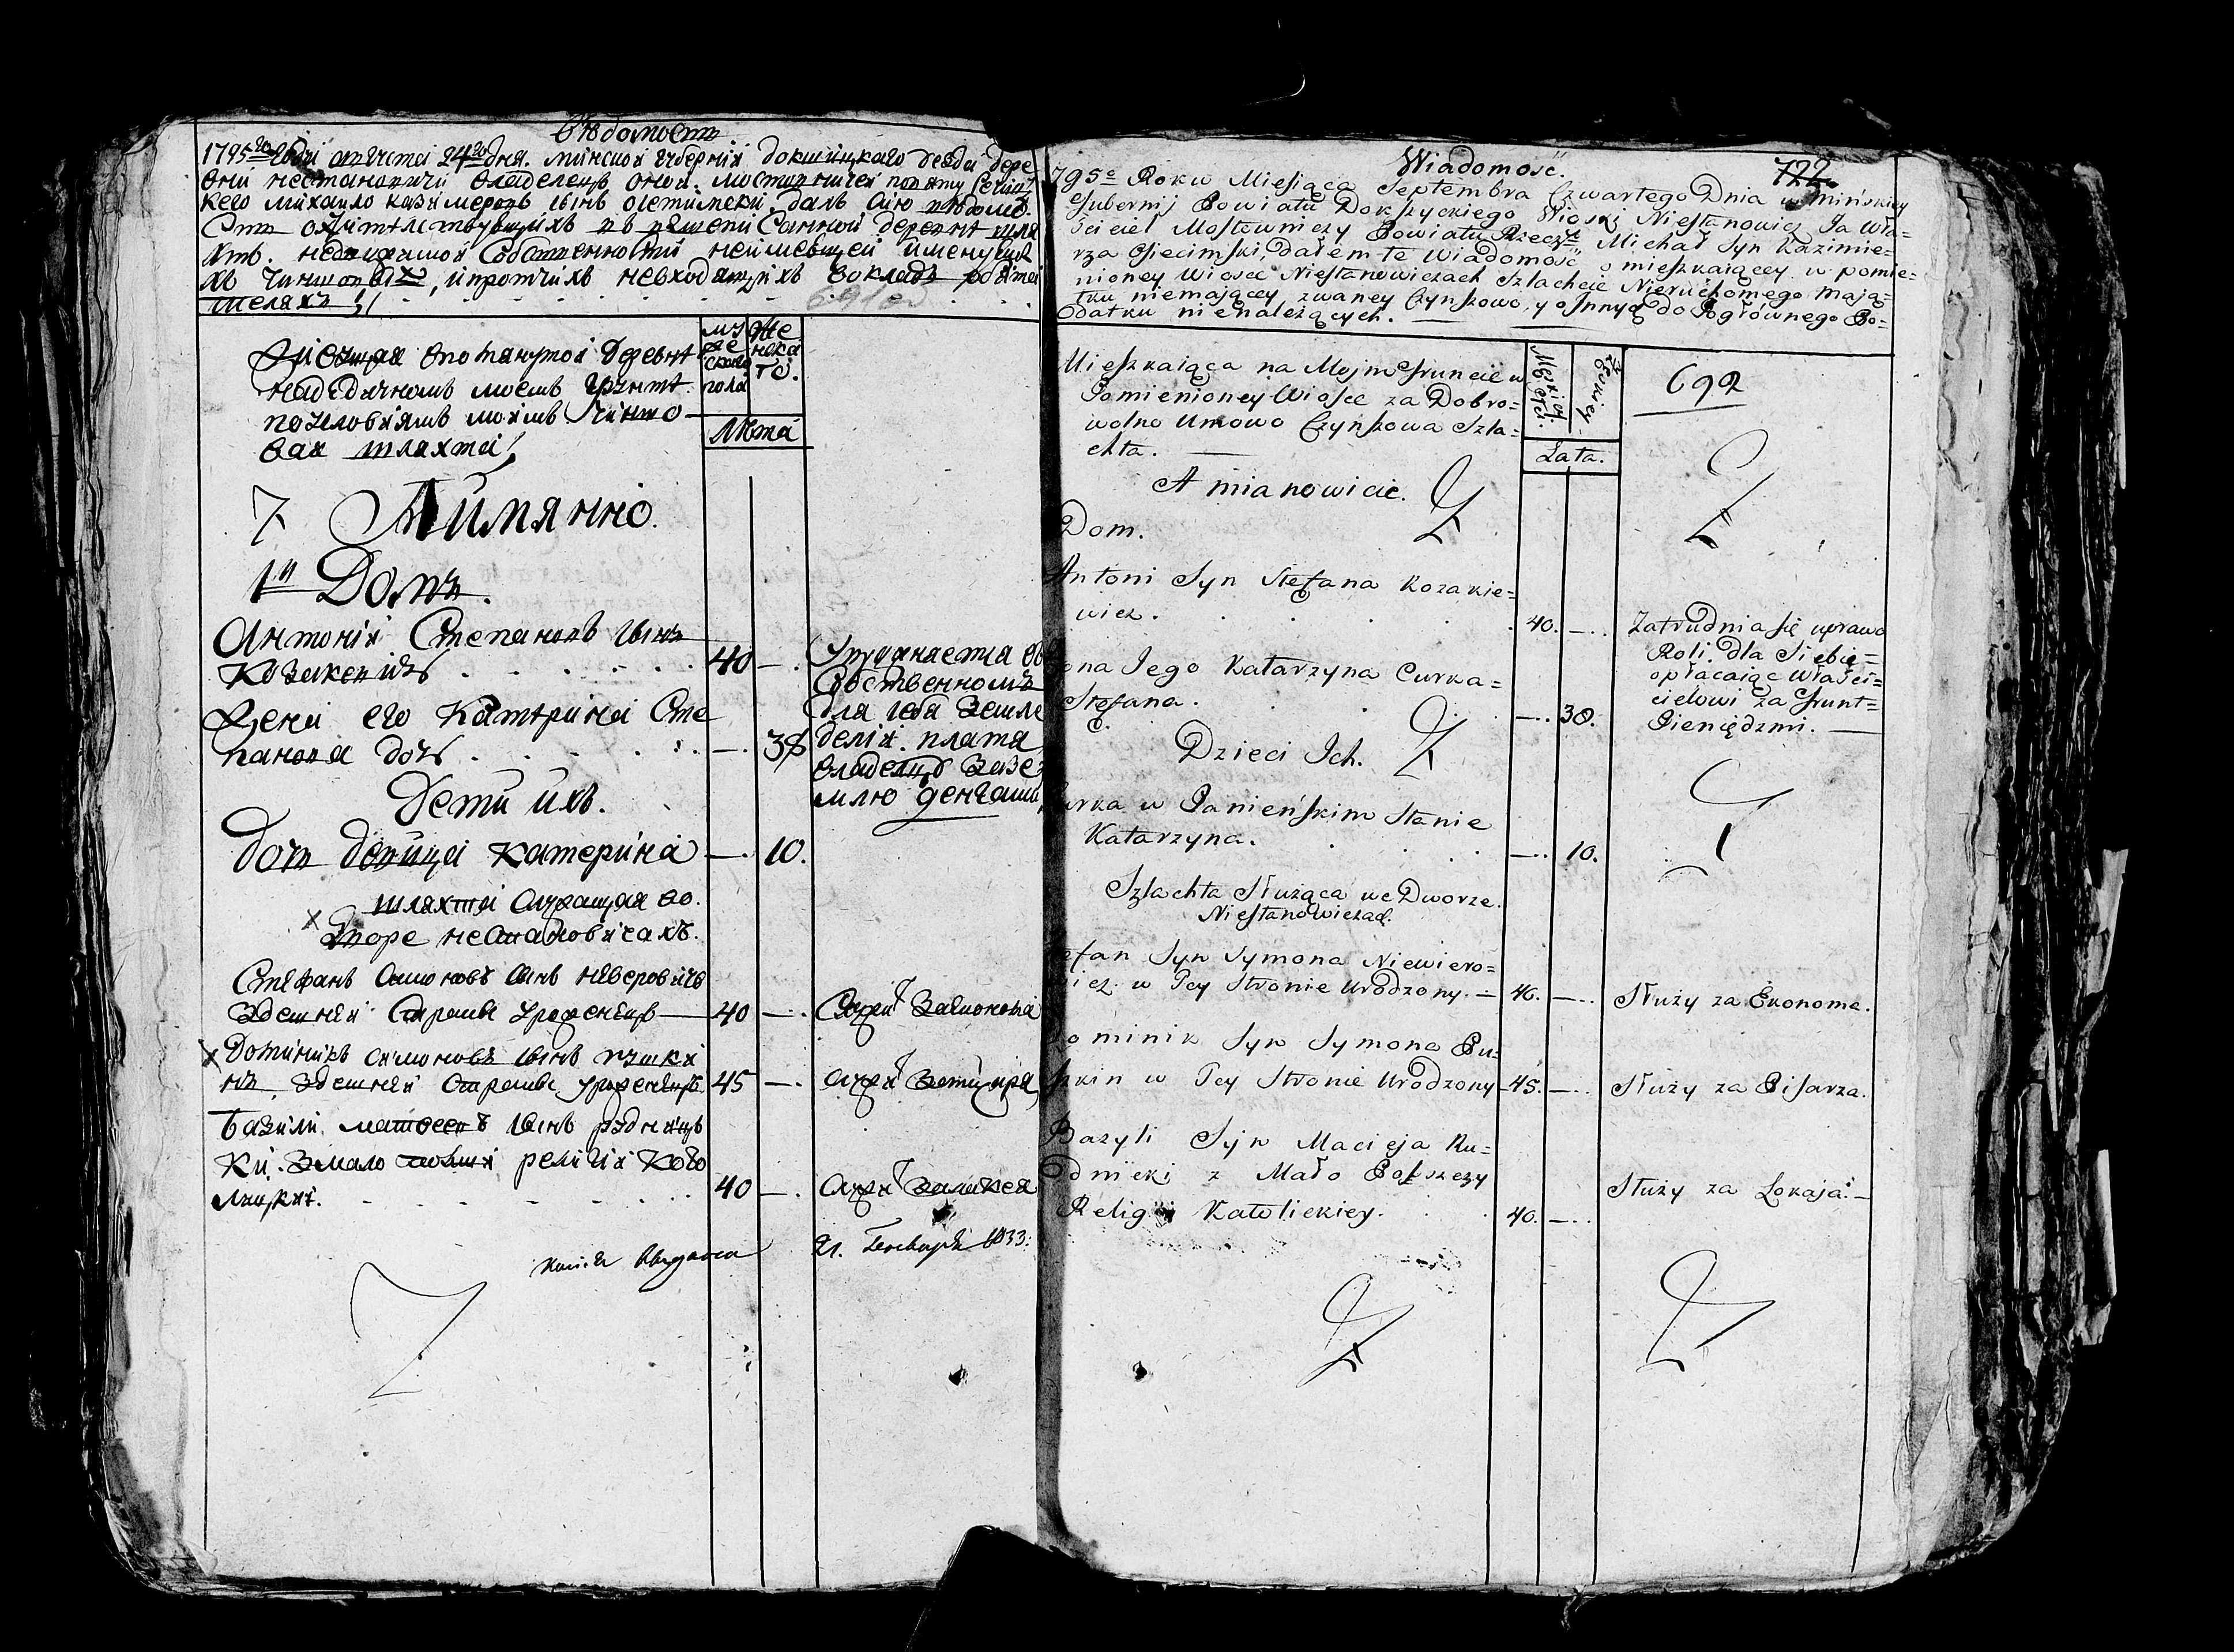 Ведомость
1795го Года августа 24го дня. минской губерніи докшицкаго уезда дере
вни нестановичи владелецъ оной. мостовничей повяту Речиц
кего михайло казимеровъ сынъ осетимски. далъ сию ведомо
недвижамой Собственности неимеющей именующ
ихъ чиншовыхъ, и протчихъ невходящихъ вокладъ
691
Живущая впомянутой деревне
надедичномъ моемъ грунте
поусловіямъ моимъ чиншо
вая шляхта
муже
скаго
пола
Же
нска
го.
Лѣта
Аимянно.
1й Домъ.
Антоній Степановъ сынъ
Козакевичъ 40 —
Жена его Катерина Сте
панова дочь — 38
Упражнается въ
Собственномъ
для себя Земле
делія. платя
владелцу Зазе
млю денгами
Дети ихъ.
Дочь девица катерина — 10.
шляхта служащая во.
Дворе нестановичахъ.
Стефанъ симоновъ сынъ неверовичъ
Здешней Страны уроженецъ — 40 — Служи Заэконома
Доминикъ симоновъ сынъ пушки
нъ. Здешней Страны уроженецъ 45 — служи Запи&#1089;аря
Базили. матвеевъ сынъ рудницъ
ки. Змало полши религіи като
лицкий. 40 — служи Залакея
21. Генваря 1833:
Wiadomość.
722
1795e Roku Miesiąca Septembra Czwartego Dnia w Mińskiey
Gubernij Powiatu Dokszyckiego Wioski Niestanowicz Ja Wła=
ściciel Mostowniczy Powiatu Rzecz. Michał Syn Kazimie=
rza Osiecimski, Dałem te Wiadomość o mieszkaiącey w pomie=
nioney Wiosce Niestanowiczach Szlachcie Nieruchomego Mają=
tku niemającey, zwaney Czynszowo, y innych do Pogłównego Po=
datku nienależących. —
Mieszkaiąca na Moim Gruncie w
Pomienioney Wiosce za Dobro=
wolno Umowo Czynszowa Szla=
chta. —
Męzkiey
Płci.
Żeńskiey
Lata.
692
A mianowicie.
Dom.
Antoni Syn Stefana Kozakie=
wicz. 40. —
Zatrudnia się uprawo
Roli. dla Siebie=
opłacaiąc właści=
cielowi za Grunt=
Pieniędzmi. —
Żona Jego Katarzyna Curka=
Stefana. — 38.
Dzieci Ich.
Curka w Panieńskim Stanie
Katarzyna. — 10.
Szlachta Służąca we Dworze.
Niestanowiczach.
Stefan Syn Symona Niewiero=
wicz. w Tey Stronie Urodzony. — 40. — Służy za Ekonoma.
Dominik Syn Symona Pu=
szkin w Tey Stronie Urodzony 45. — Służy za Pisarza.
Bazyli Syn Macieja Ru=
dnicki z Mało Polszczy
Religij Katolickiey. 40. —
Służy za Lokaja. —